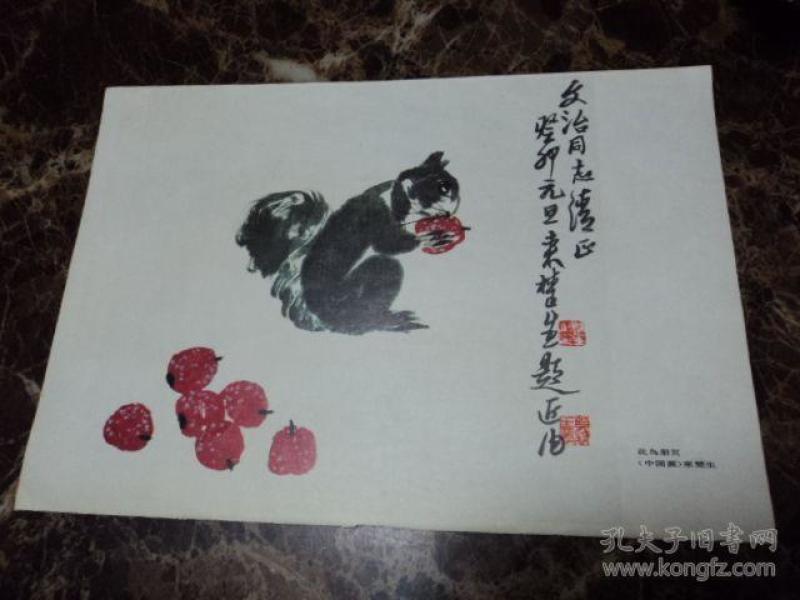 文治同志请正
癸卯元旦来楚生题近
花鸟册页
〈中国画〉来楚生
孔夫子旧书网
www.kongfz.com